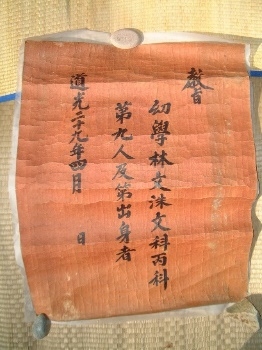 敎旨
幼學林㐀洙文科丙科
第九人及第出身者
道光二十九年四月　日